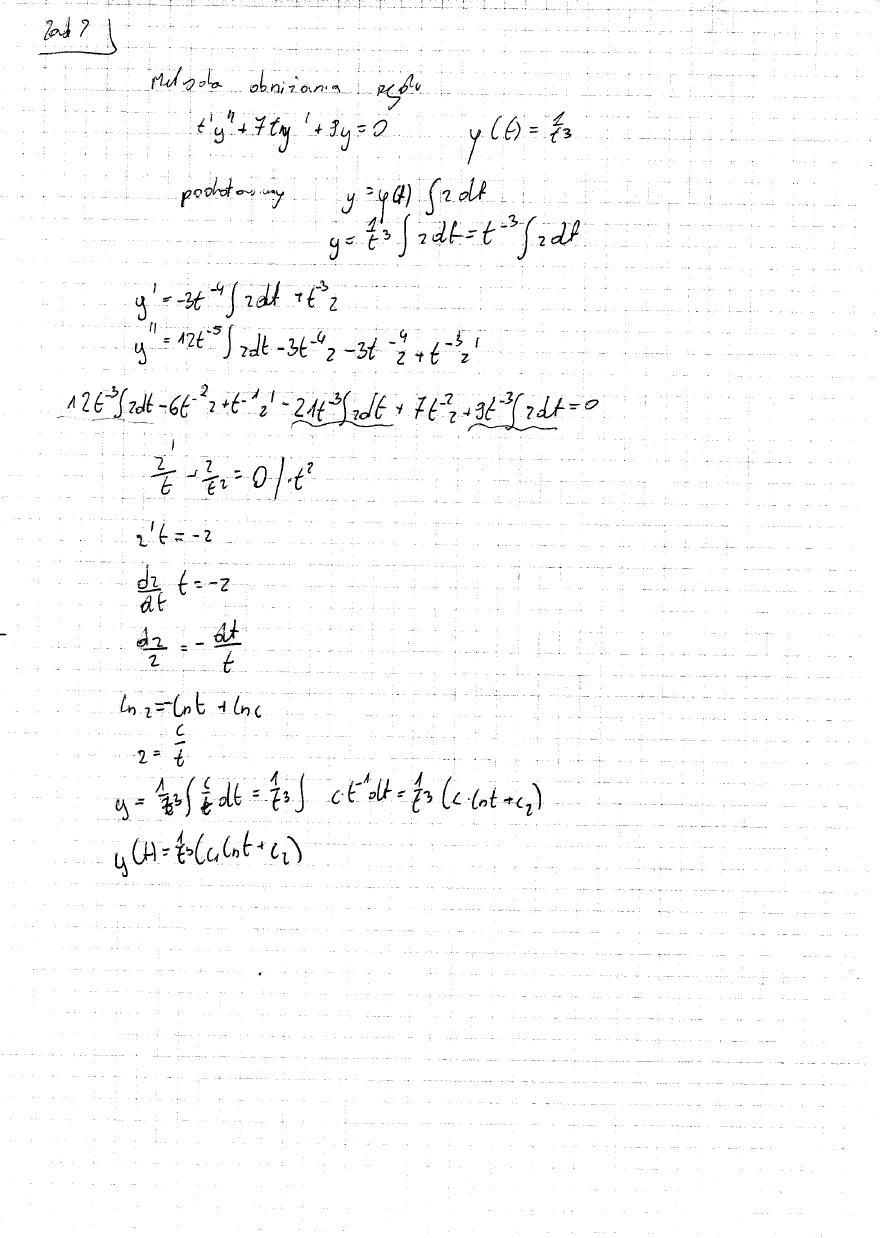 Zad 7
Metoda obniżania rzędu
t'y'' + 7ty' + 9y = 0 y(t) = 1/t³
podstawmy y = y(t) ∫ z dt
y = 1/t³ ∫ z dt = t⁻³ ∫ z dt
y' = -3t⁻⁴ ∫ z dt + t⁻³ z
y'' = 12t⁻⁵ ∫ z dt - 3t⁻⁴ z - 3t⁻⁴ z + t⁻³ z'
12t⁻³ ∫ z dt - 6t⁻² z + t⁻¹ z' - 21t⁻³ ∫ z dt + 7t⁻² z + 9t⁻³ ∫ z dt = 0
z'/t + z/t² = 0 / · t²
z't = -z
dz/dt t = -z
dz/z = - dt/t
ln z = -ln t + ln c
z = c/t
y = 1/t³ ∫ c/t dt = 1/t³ ∫ c · t⁻¹ dt = 1/t³ (c · ln t + c₂)
y(t) = 1/t³ (c₁ ln t + c₂)